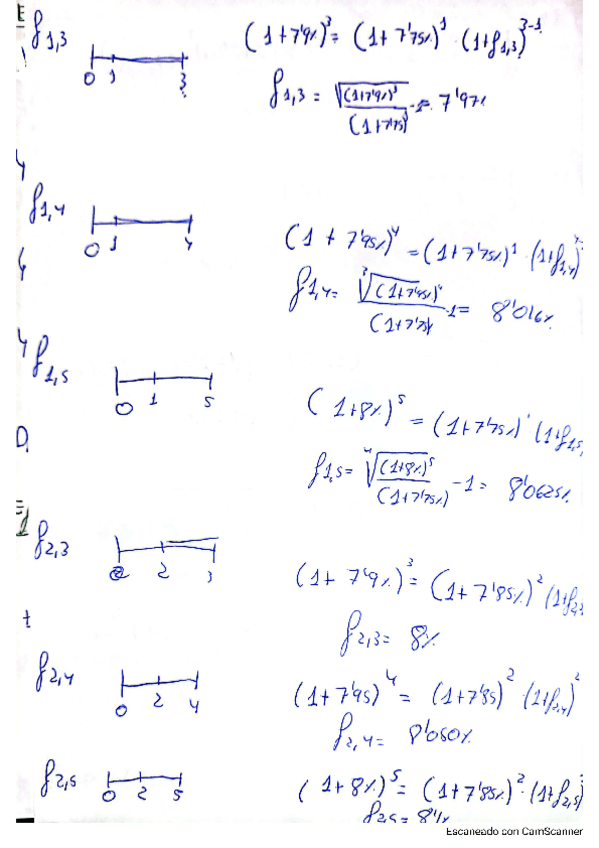 f1,3
0 1 3
(1+7'9%)³ = (1+7'75%)¹ · (1+f1,3)³⁻¹
f1,3 = √(1+7'9%)³/(1+7'75) -1 = 7'97%
f1,4
0 1 4
(1 + 7'95%)⁴ = (1+7'75%)¹ · (1+f1,4)
f1,4 = ³√(1+7'95%)⁴/(1+7'75) -1 = 8'016%
f1,5
0 1 5
(1+8%)⁵ = (1+7'75%)¹ (1+f1,5
f1,5 = ⁴√(1+8%)⁵/(1+7'75%) -1 = 8'0625%
f2,3
0 2 3
(1+ 7'9%)³ = (1+ 7'85%)² (1+f2,3
f2,3 = 8%
f2,4
0 2 4
(1+7'95)⁴ = (1+7'85)² · (1+f2,4)²
f2,4 = 8'050%
f2,5
0 2 5
(1+8%)⁵ = (1+7'85%)² · (1+f2,5)
f2,5 = 8'1%
Escaneado con CamScanner